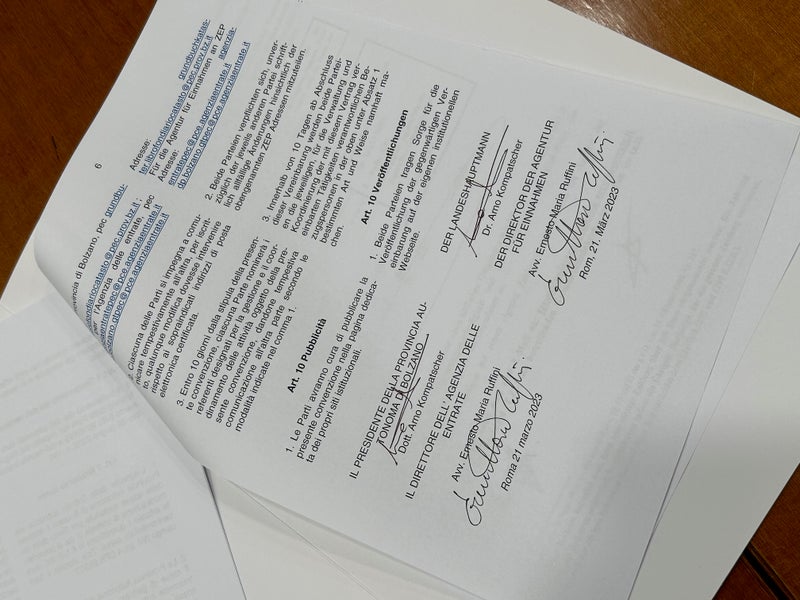 6
provincia di Bolzano, pec grundbu-
chkataster.librifondiariocatasto@pec.prov.bz.it ;
per l'Agenzia delle entrate, pec
agenziaentratepec@pce.agenziaentrate.it
dp.bolzano.gtpec@pce.agenziaentrate.it
2. Ciascuna delle Parti si impegna a comu-
nicare tempestivamente all'altra, per iscrit-
to, qualunque modifica dovesse intervenire
rispetto ai sopraindicati indirizzi di posta
elettronica certificata.
3. Entro 10 giorni dalla stipula della presen-
te convenzione, ciascuna Parte nominerà i
referenti designati per la gestione e il coor-
dinamento delle attività oggetto della pre-
sente convenzione, dandone tempestiva
comunicazione all'altra parte secondo le
modalità indicate nel comma 1.
Art. 10 Pubblicità
1. Le Parti avranno cura di pubblicare la
presente convenzione nella pagina dedica-
ta dei propri siti istituzionali.
IL PRESIDENTE DELLA PROVINCIA AU-
TONOMA DI BOLZANO
Dott. Arno Kompatscher
IL DIRETTORE DELL'AGENZIA DELLE
ENTRATE
Avv. Ernesto Maria Ruffini
Roma 21 marzo 2023
Adresse: grundbuchkatas-
ter.librifondiariocatasto@pec.prov.bz.it
Für die Agentur für Einnahmen an ZEP
Adresse: agenzia-
entratepec@pce.agenziaentrate.it
dp.bolzano.gtpec@pce.agenziaentrate.it
2. Beide Parteien verpflichten sich unver-
züglich der jeweils anderen Partei schrift-
lich allfällige Änderungen hinsichtlich der
obengenannten ZEP Adressen mitzuteilen.
3. Innerhalb von 10 Tagen ab Abschluss
dieser Vereinbarung werden beide Partei-
en die jeweiligen, für die Verwaltung und
Koordinierung der mit diesem Vertrag ver-
einbarten Tätigkeiten verantwortlichen Be-
zugspersonen in der oben unter Absatz 1
bestimmten Art und Weise namhaft ma-
chen.
Art. 10 Veröffentlichungen
1. Beide Parteien tragen Sorge für die
Veröffentlichung der gegenwärtigen Ver-
einbarung auf der eigenen institutionellen
Webseite.
DER LANDESHAUPTMANN
Dr. Arno Kompatscher
DER DIREKTOR DER AGENTUR
FÜR EINNAHMEN
Avv. Ernesto Maria Ruffini
Rom, 21. März 2023